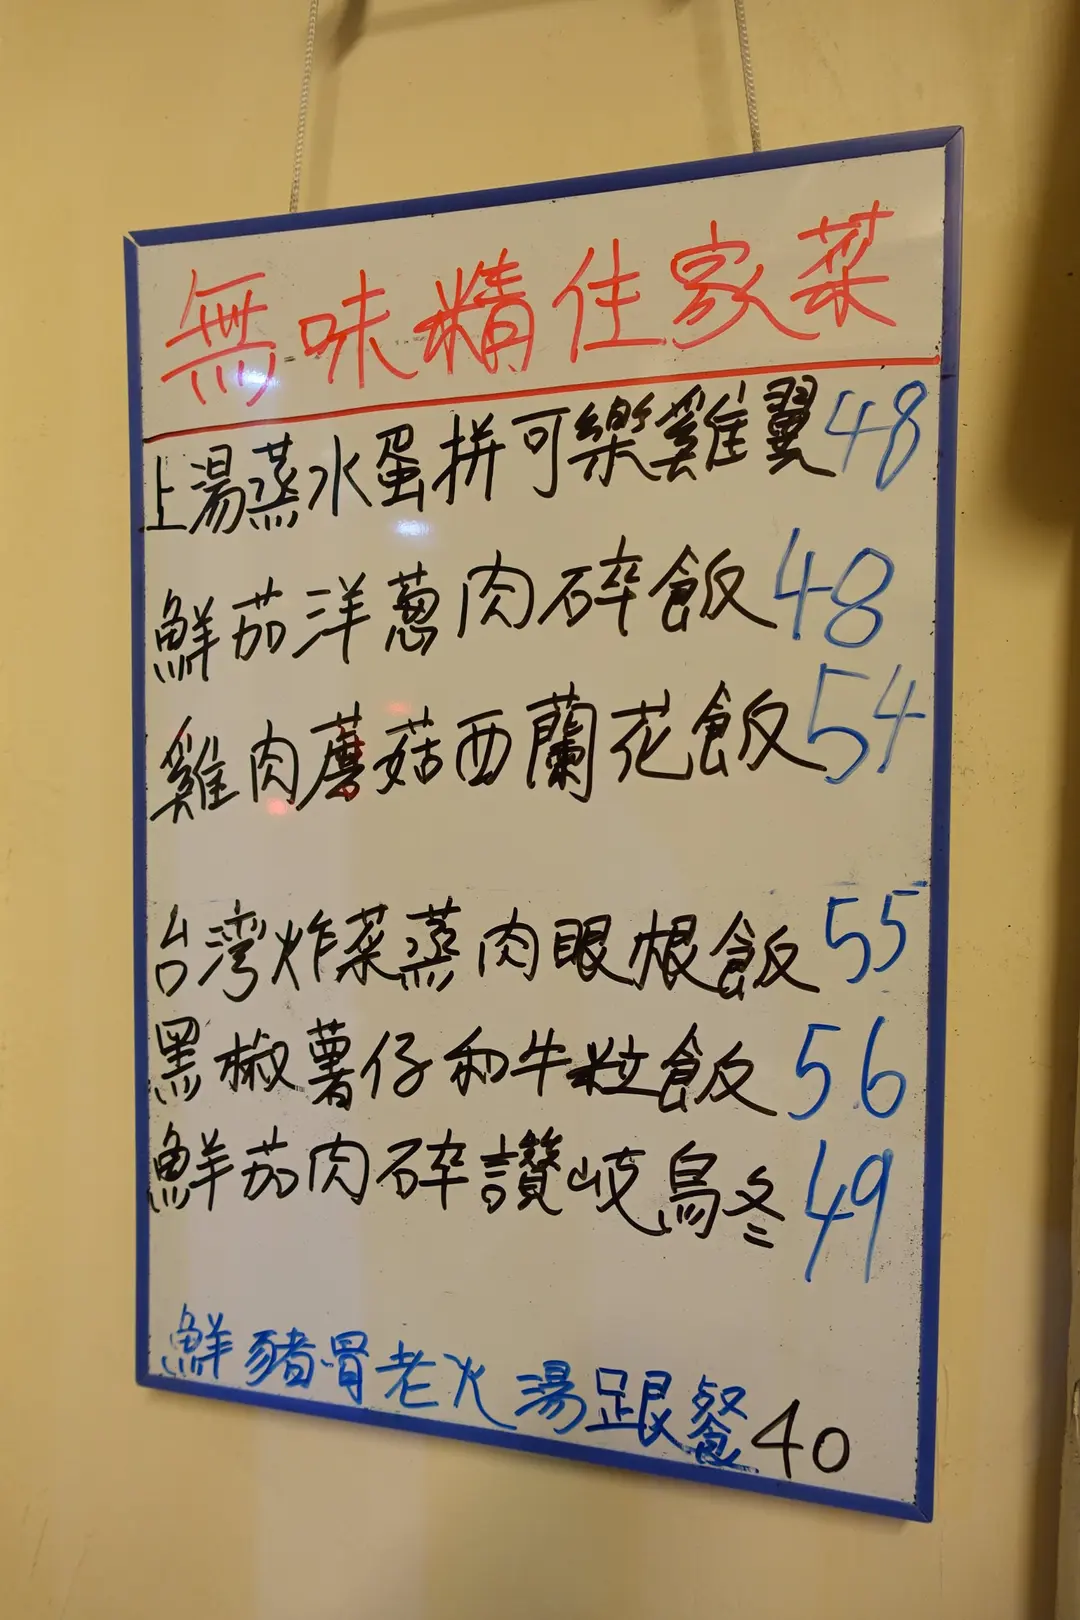 無味精住家菜
上湯蒸水蛋拼可樂雞翼48
鮮茄洋蔥肉碎飯48
雞肉蘑菇西蘭花飯54
台灣炸菜蒸肉眼根飯55
黑椒薯仔和牛粒飯56
鮮茄肉碎讚岐烏冬49
鮮豬骨老火湯跟餐40